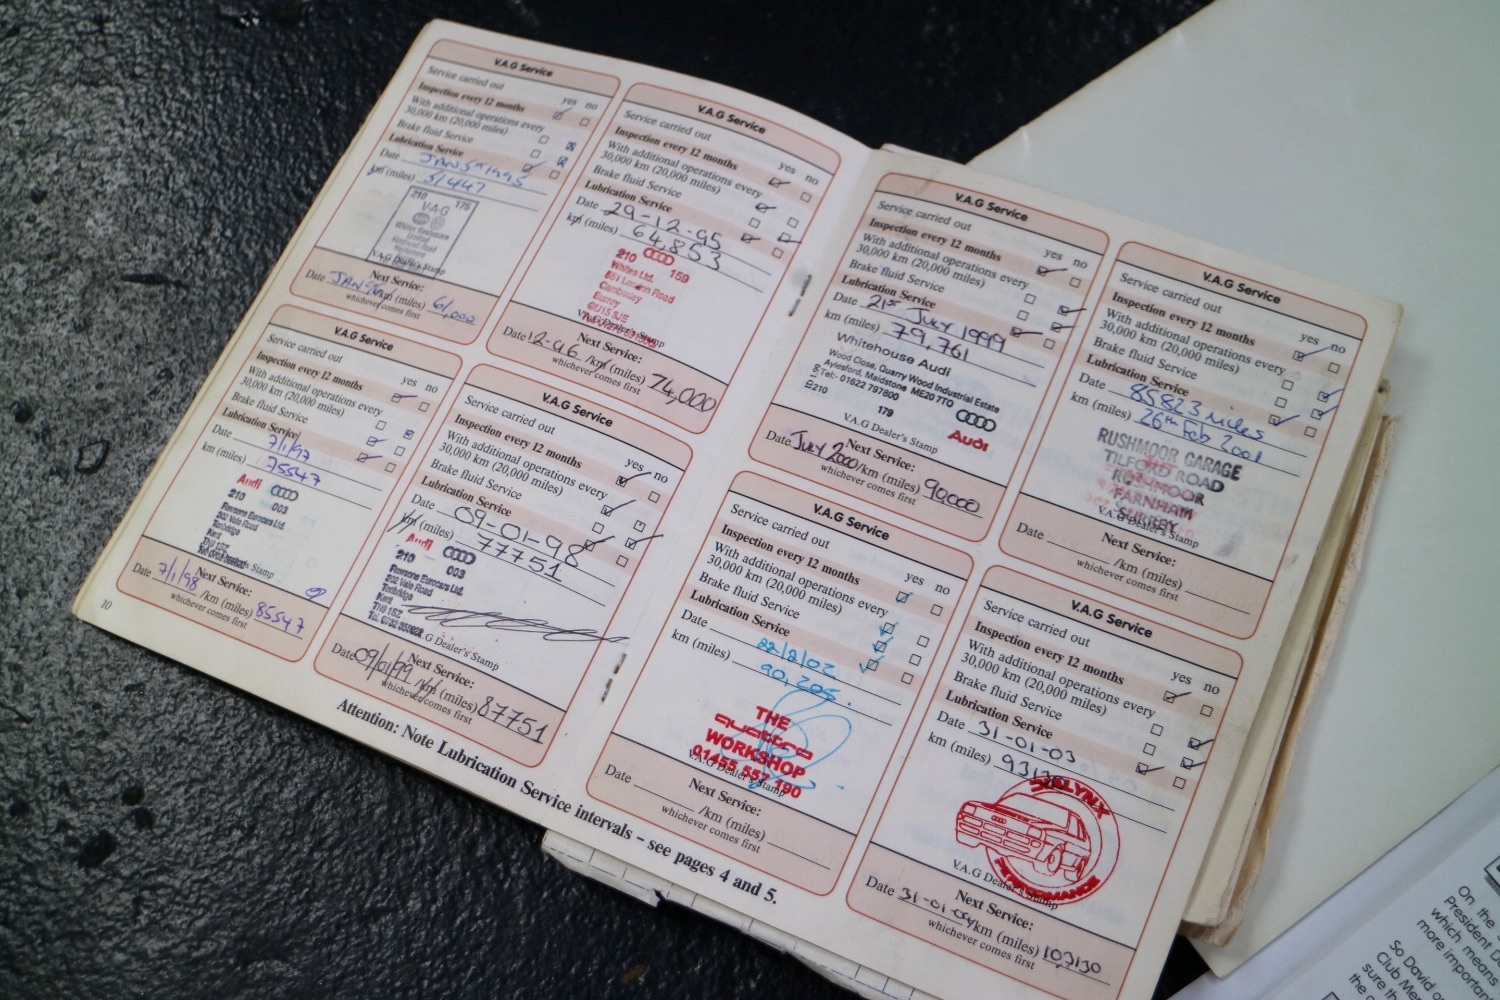 V.A.G Service
Service carried out
Inspection every 12 months
yes no
With additional operations every
30,000 km (20,000 miles)
Brake fluid Service
Lubrication Service
Date JAN 5th 1995
km (miles) 51447
210 175
V.A.G
Limited
V.A.G Dealer's Stamp
Next Service:
Date JAN /km (miles) 61,000
whichever comes first
V.A.G Service
Service carried out
Inspection every 12 months
yes no
With additional operations every
30,000 km (20,000 miles)
Brake fluid Service
Lubrication Service
Date 29-12-95
km (miles) 64,853
210 159
Whites Ltd.
551 London Road
Camberley
Surrey
GU15 3JE
V.A.G Dealer's Stamp
Next Service:
Date 12-96 /km (miles) 74,000
whichever comes first
V.A.G Service
Service carried out
Inspection every 12 months
yes no
With additional operations every
30,000 km (20,000 miles)
Brake fluid Service
Lubrication Service
Date 7/1/97
km (miles) 75547
Audi
210 003
Eurocars Ltd.
202 Vale Road
Tonbridge
Kent
TN9 1SZ
Dealer's Stamp
Next Service:
Date 7/1/98 /km (miles) 85547
whichever comes first
10
V.A.G Service
Service carried out
Inspection every 12 months
yes no
With additional operations every
30,000 km (20,000 miles)
Brake fluid Service
Lubrication Service
Date 09-01-98
km (miles) 77751
Audi
210 003
Eurocars Ltd.
202 Vale Road
Tonbridge
Kent
TN9 1SZ
V.A.G Dealer's Stamp
Next Service:
Date 09/01/99 /km (miles) 87751
whichever comes first
Attention: Note Lubrication Service intervals – see pages 4 and 5.
V.A.G Service
Service carried out
Inspection every 12 months
yes no
With additional operations every
30,000 km (20,000 miles)
Brake fluid Service
Lubrication Service
Date 21st July 1999
km (miles) 79,761
Whitehouse Audi
Wood Close, Quarry Wood Industrial Estate
Aylesford, Maidstone ME20 7TO
Tel:- 01622 797600
210 179
Audi
V.A.G Dealer's Stamp
Next Service:
Date July 2000 /km (miles) 90000
whichever comes first
V.A.G Service
Service carried out
Inspection every 12 months
yes no
With additional operations every
30,000 km (20,000 miles)
Brake fluid Service
Lubrication Service
Date 85823 miles
km (miles) 26th Feb 2001
RUSHMOOR GARAGE
TILFORD ROAD
RUSHMOOR
FARNHAM
SURREY
V.A.G Dealer's Stamp
Next Service:
Date /km (miles)
whichever comes first
V.A.G Service
Service carried out
Inspection every 12 months
yes no
With additional operations every
30,000 km (20,000 miles)
Brake fluid Service
Lubrication Service
Date 22/2/02
km (miles) 90,205.
THE
quattro
WORKSHOP
01455 557 190
V.A.G Dealer's Stamp
Next Service:
Date /km (miles)
whichever comes first
V.A.G Service
Service carried out
Inspection every 12 months
yes no
With additional operations every
30,000 km (20,000 miles)
Brake fluid Service
Lubrication Service
Date 31-01-03
km (miles) 93130
PERFORMANCE
V.A.G Dealer's Stamp
Next Service:
Date 31-01-04 /km (miles) 103130
whichever comes first
On the
President D
which means
more importan
So David
Club Me
sure th
the